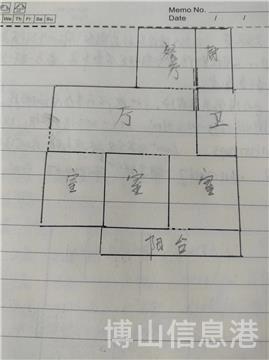 Memo No.
We Th Fr Sa Su
Date / /
餐厅
厨
厅
卫
室 室 室
阳台
博山信息港